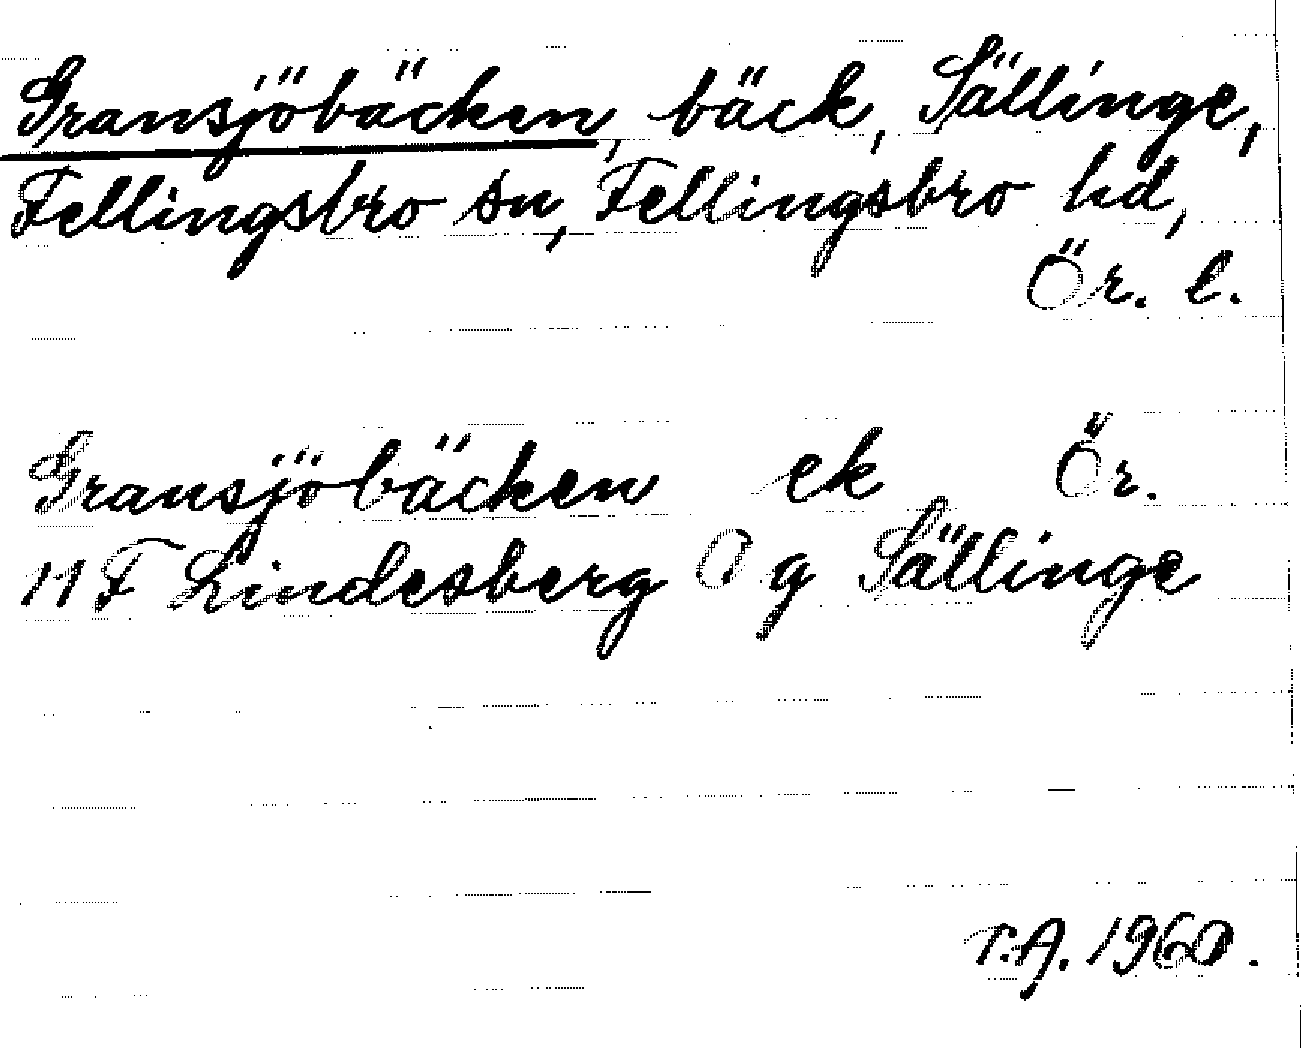 Gransjöbäcken, bäck, Sällinge,
Fellingsbro sn, Fellingsbro hd,
Ör. l.
Gransjöbäcken ek Ör.
11 F Lindesberg O g Sällinge
T.A. 1960.